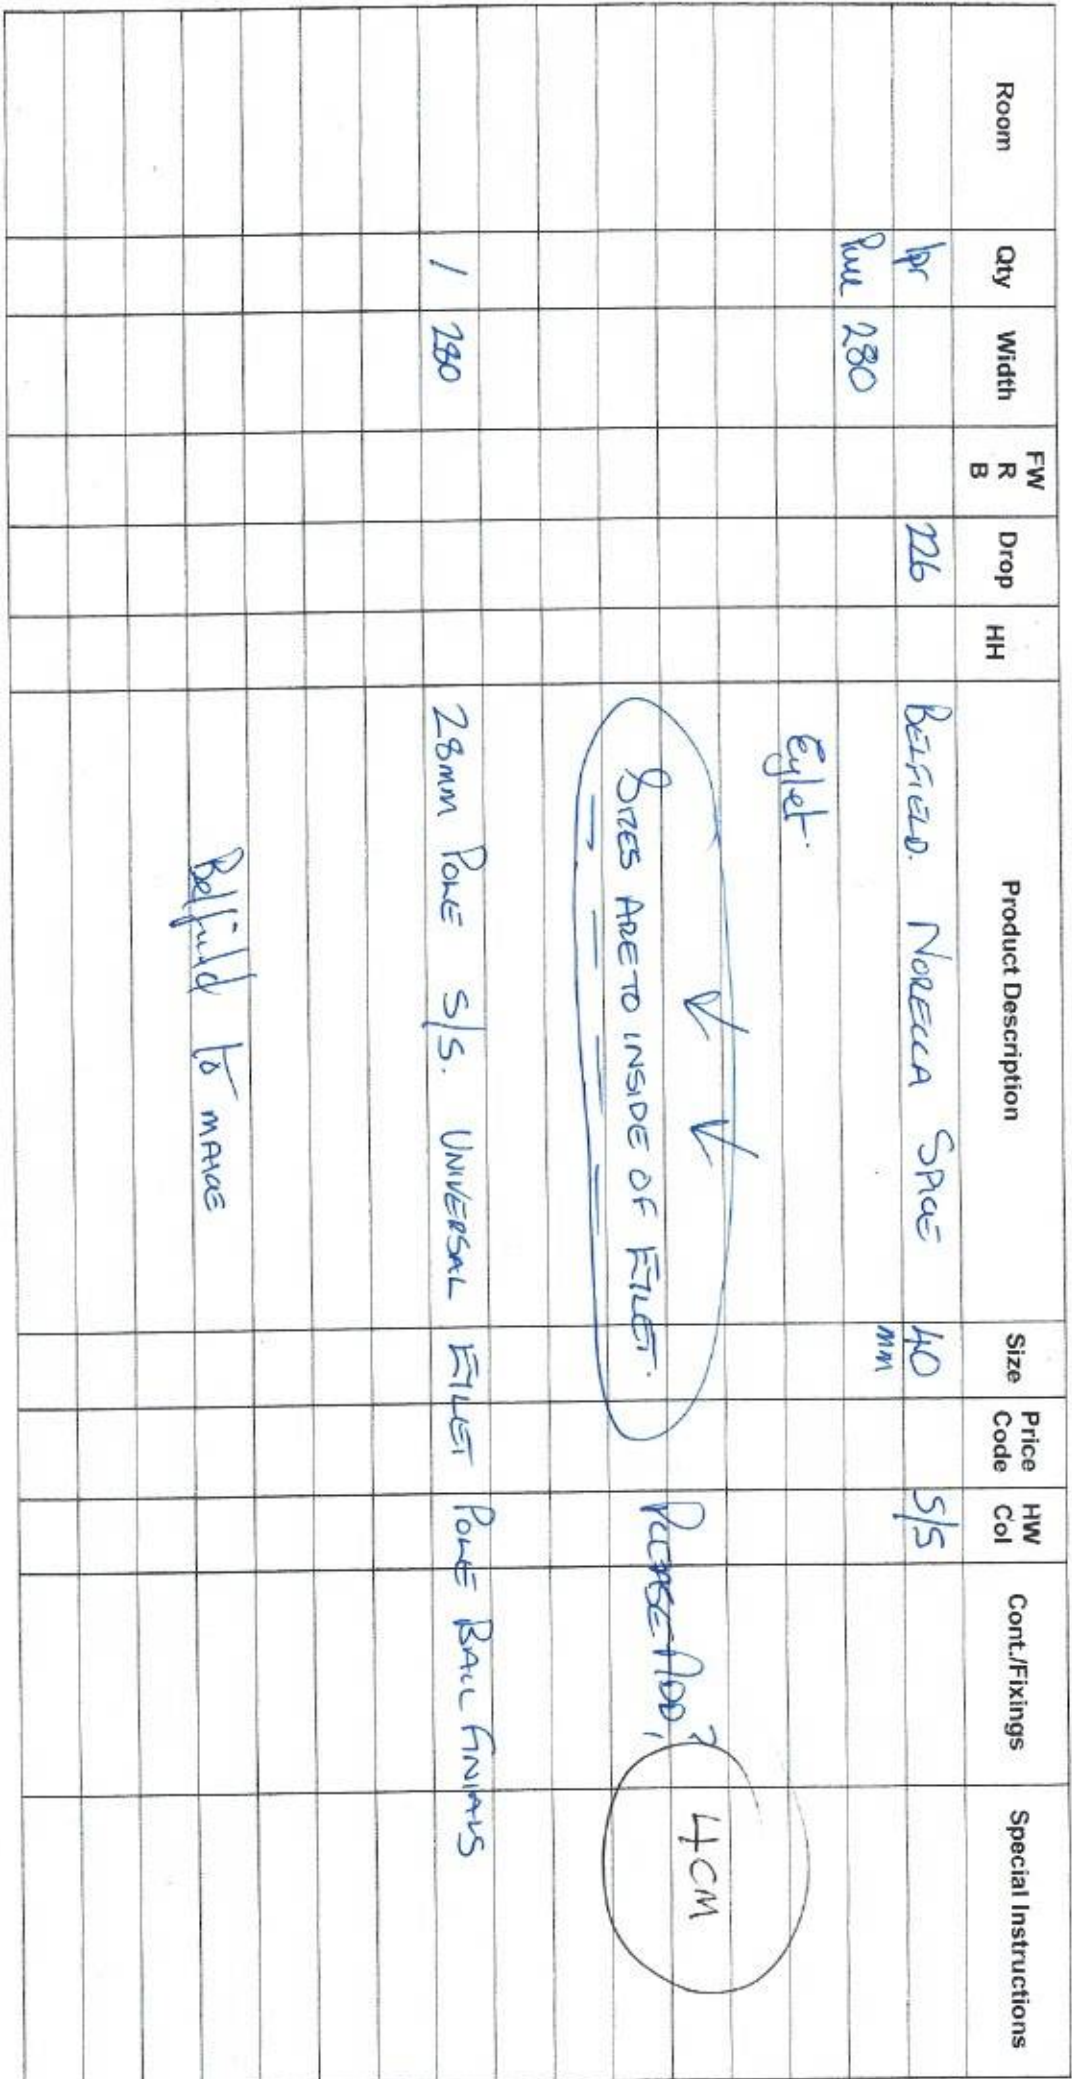 Room Qty Width FW R B Drop HH Product Description Size Price Code HW Col Cont./Fixings Special Instructions
1pr 226 BELFIELD. NORELLA SPICE 40 S/S
Pole 280 mm
Eylet.
SIZES ARE TO INSIDE OF EYLET. PLEASE ADD? 4CM
1 280 28mm POLE S/S. UNIVERSAL EYLET POLE BALL FINIALS
Belfield to MAKE